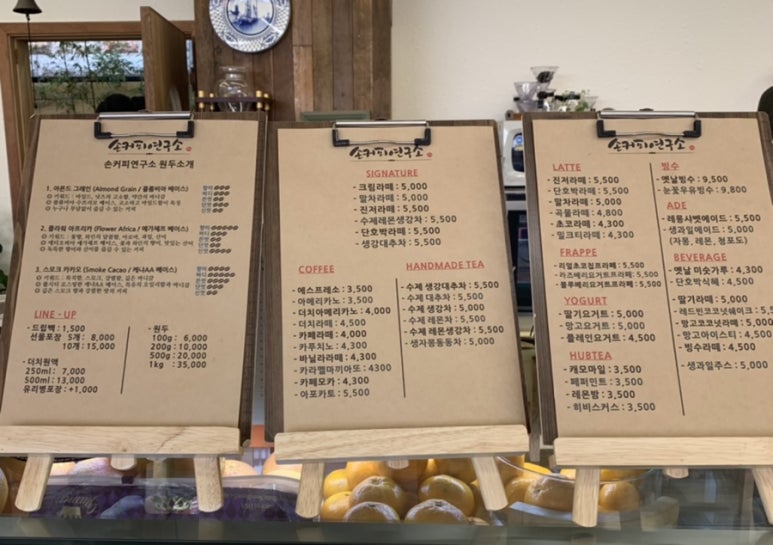 손커피연구소
손커피연구소 원두소개
1. 아몬드 그레인 (Almond Grain / 콜롬비아 베이스)
2. 플라워 아프리카 (Flower Africa / 예가체프 베이스)
3. 스모크 카카오 (Smoke Cacao / 케냐AA 베이스)
LINE - UP
- 드립백 : 1,500
선물포장 5개 : 8,000
10개 : 15,000
- 더치원액
250ml : 7,000
500ml : 13,000
유리병포장 : +1,000
- 원두
100g : 6,000
200g : 10,000
500g : 20,000
1kg : 35,000
손커피연구소
SIGNATURE
- 크림라떼 : 5,000
- 말차라떼 : 5,000
- 진저라떼 : 5,000
- 수제레몬생강차 : 5,500
- 단호박라떼 : 5,000
- 생강대추차 : 5,500
COFFEE
- 에스프레소 : 3,500
- 아메리카노 : 3,500
- 더치아메리카노 : 4,000
- 더치라떼 : 4,500
- 카페라떼 : 4,000
- 카푸치노 : 4,300
- 바닐라라떼 : 4,300
- 카라멜마끼아또 : 4300
- 카페모카 : 4,300
- 아포카토 : 5,500
HANDMADE TEA
- 수제 생강대추차 : 5,500
- 수제 대추차 : 5,500
- 수제 생강차 : 5,000
- 수제 레몬차 : 5,500
- 수제 레몬생강차 : 5,500
- 생자몽동동차 : 5,500
손커피연구소
LATTE
- 진저라떼 : 5,500
- 단호박라떼 : 5,500
- 말차라떼 : 5,000
- 곡물라떼 : 4,800
- 초코라떼 : 4,300
- 밀크티라떼 : 4,300
FRAPPE
- 리얼초코칩프라페 : 5,500
- 라즈베리요거트프라페 : 5,500
- 블루베리요거트프라페 : 5,500
YOGURT
- 딸기요거트 : 5,000
- 망고요거트 : 5,000
- 플레인요거트 : 4,500
HUBTEA
- 캐모마일 : 3,500
- 페퍼민트 : 3,500
- 레몬밤 : 3,500
- 히비스커스 : 3,500
빙수
- 옛날빙수 : 9,500
- 눈꽃우유빙수 : 9,800
ADE
- 레몽샤벳에이드 : 5,500
- 생과일에이드 : 5,000
(자몽, 레몬, 청포도)
BEVERAGE
- 옛날 미숫가루 : 4,300
- 단호박식혜 : 4,500
- 딸기라떼 : 5,000
- 레드빈코코넛쉐이크 : 5,500
- 망고코코넛라떼 : 5,000
- 망고아이스티 : 4,500
- 빙수라떼 : 4,500
- 생과일주스 : 5,500